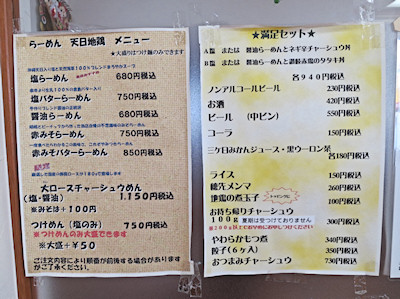 らーめん 天日地鶏 メニュー
★大盛りはつけ麺のみできます
塩らーめん 680円税込
塩バターらーめん 750円税込
醤油らーめん 680円税込
赤みそらーめん 780円税込
赤みそバターらーめん 850円税込
大ロースチャーシュウめん
(塩・醤油) 1.150円税込
※みそは+100円
つけめん(塩のみ) 750円税込
※つけめんのみ大盛できます
※大盛+¥50
ご注文内容により順番が前後する場合があります
がご了承ください。
★満足セット★
A塩 または 醤油らーめんとネギ辛チャーシュウ丼
B塩 または 醤油らーめんと讃岐赤鶏のタタキ丼
各940円税込
ノンアルコールビール 230円税込
お酒 420円税込
ビール (中ビン) 550円税込
コーラ 150円税込
三ケ日みかんジュース・黒ウーロン茶
各180円税込
ライス 150円税込
穂先メンマ 260円税込
地鶏の煮玉子 100円税込
お持ち帰りチャーシュウ
100g 夏期は受けておりません 300円税込
やわらかもつ煮 340円税込
餃子(6ヶ入) 350円税込
おつまみチャーシュウ 730円税込